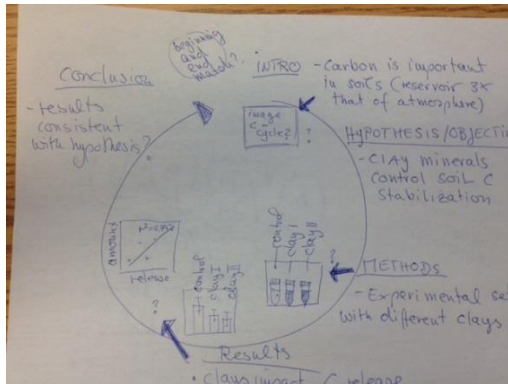 beginning
and
end
match?
Conclusion
- results
consistent
with hypothesis?
INTRO - Carbon is important
in soils (reservoir 3x
that of atmorphere)
image
C-
cycle?
?
HYPOTHESIS/OBJECTI
- ClAy minerals
control soil C
Stabilization
control
clay I
clay II
?
METHODS
- Experimental se
with different clays
amount
release
control
clay I
clay II
?
Results
• clays impact C release